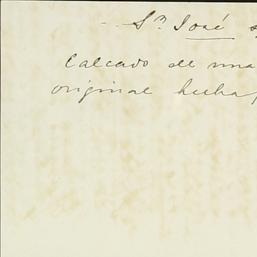 Sn. José
Calcado de una
original hecha,